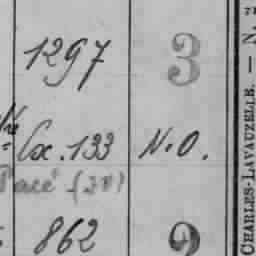 1297 3
Cx. 133 N.O.
Pacé (30)
862 2
CHARLES-LAVAUZELLE. — N. 71